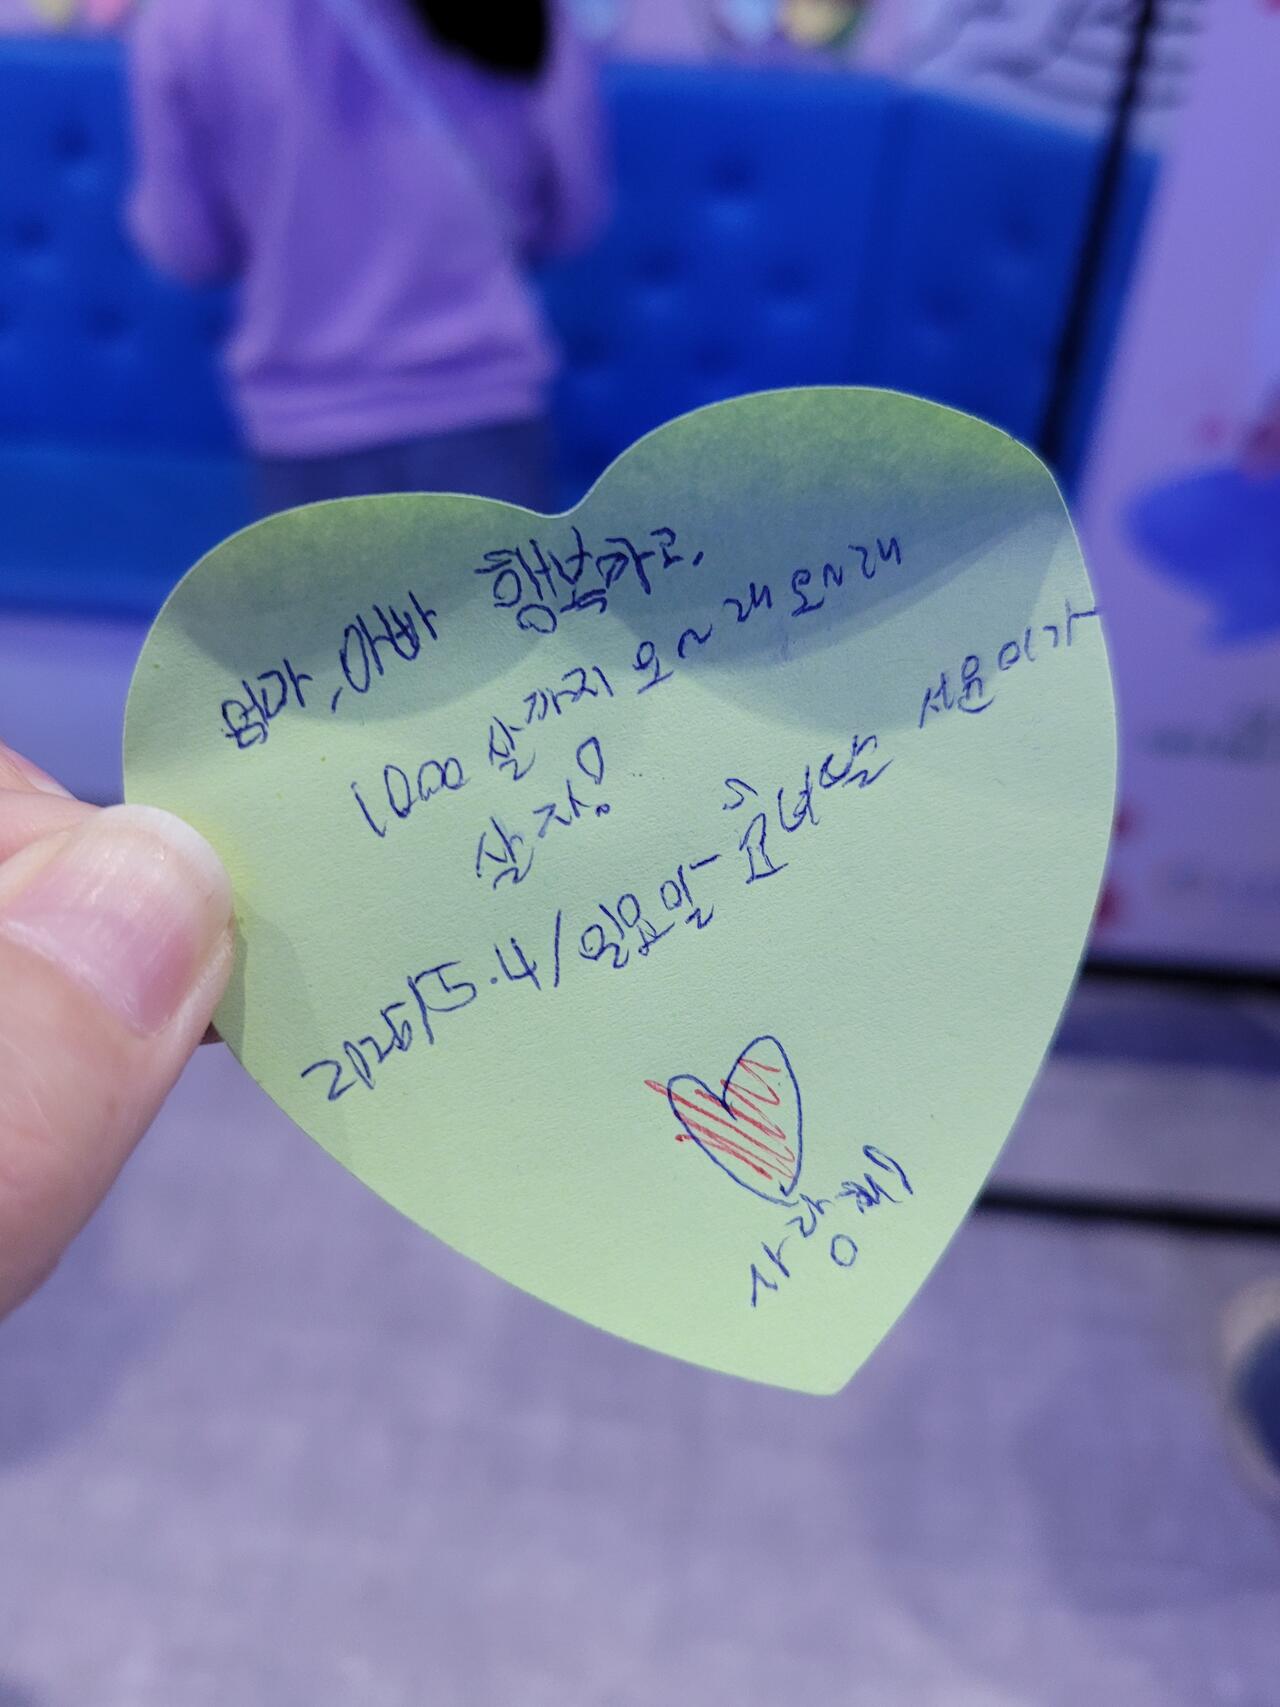 엄마, 아빠 행복하고,
1000살까지 오~래 오~래
살자!
2025/5.4/일요일- 효녀딸 서윤이가-
사랑해!